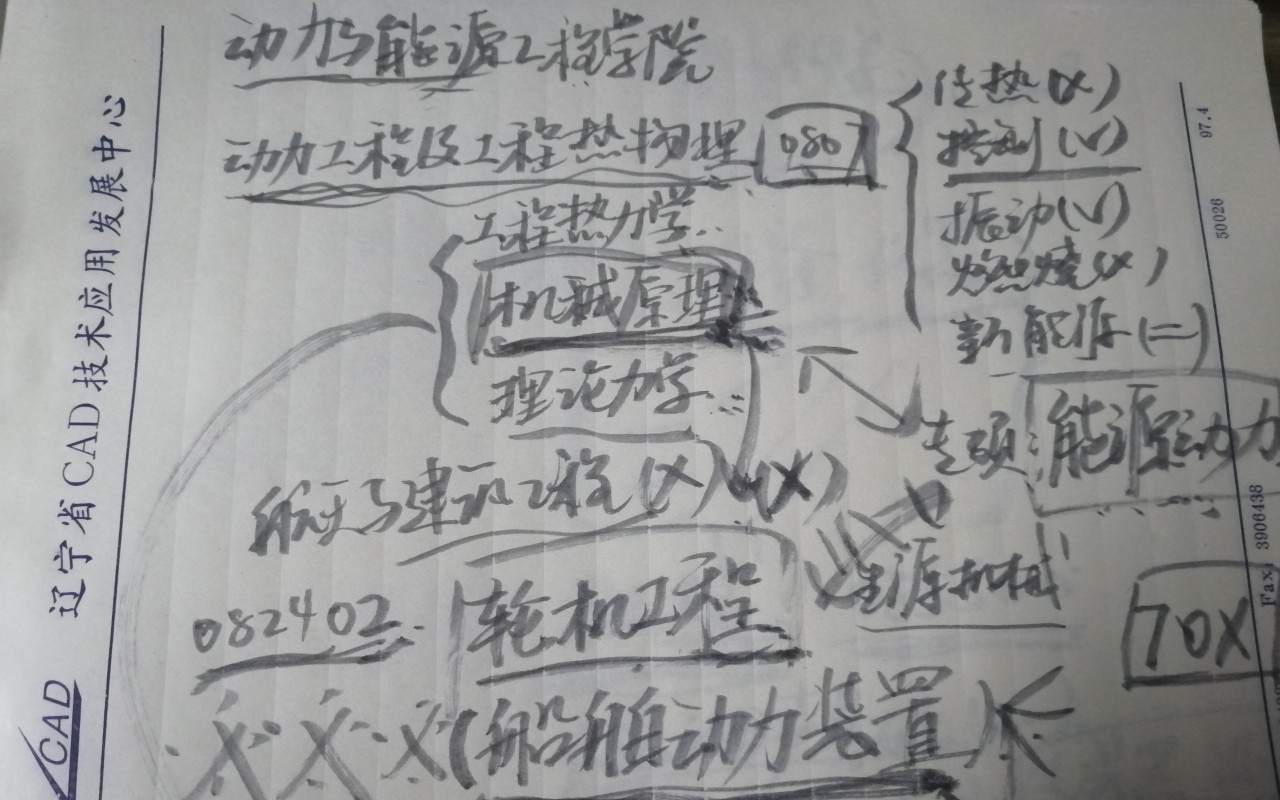 动力与能源工程学院
动力工程及工程热物理 0807
传热(X)
控制(V)
振动(V)
燃烧(X)
新能源(二)
工程热力学
机械原理
理论力学
专项:能源动力
航天与建筑工程(X) (X)
能源机械
082402 轮机工程
70X
X X X (船舶动力装置)
辽宁省CAD技术应用发展中心
CAD
97.4
50026
Fax: 3906438